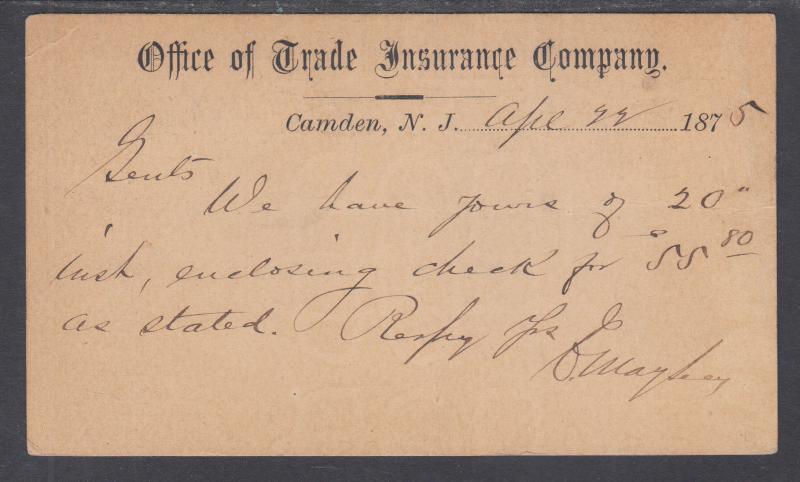 Office of Trade Insurance Company.
Camden, N. J. Apl 22 1875
Gents
We have yours of 20"
inst, enclosing check for $55 80
as stated. Respy Yrs